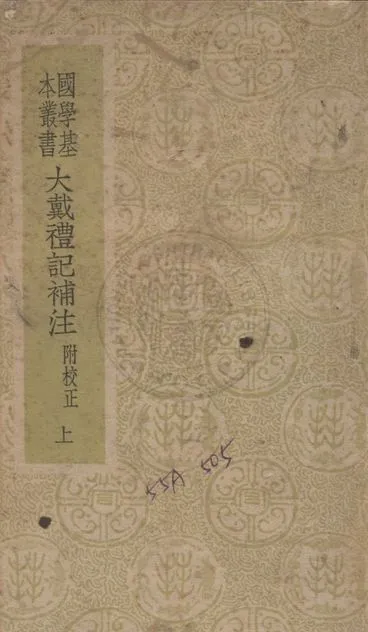 國學基
本叢書
大戴禮記補注 附校正 上
55A 505